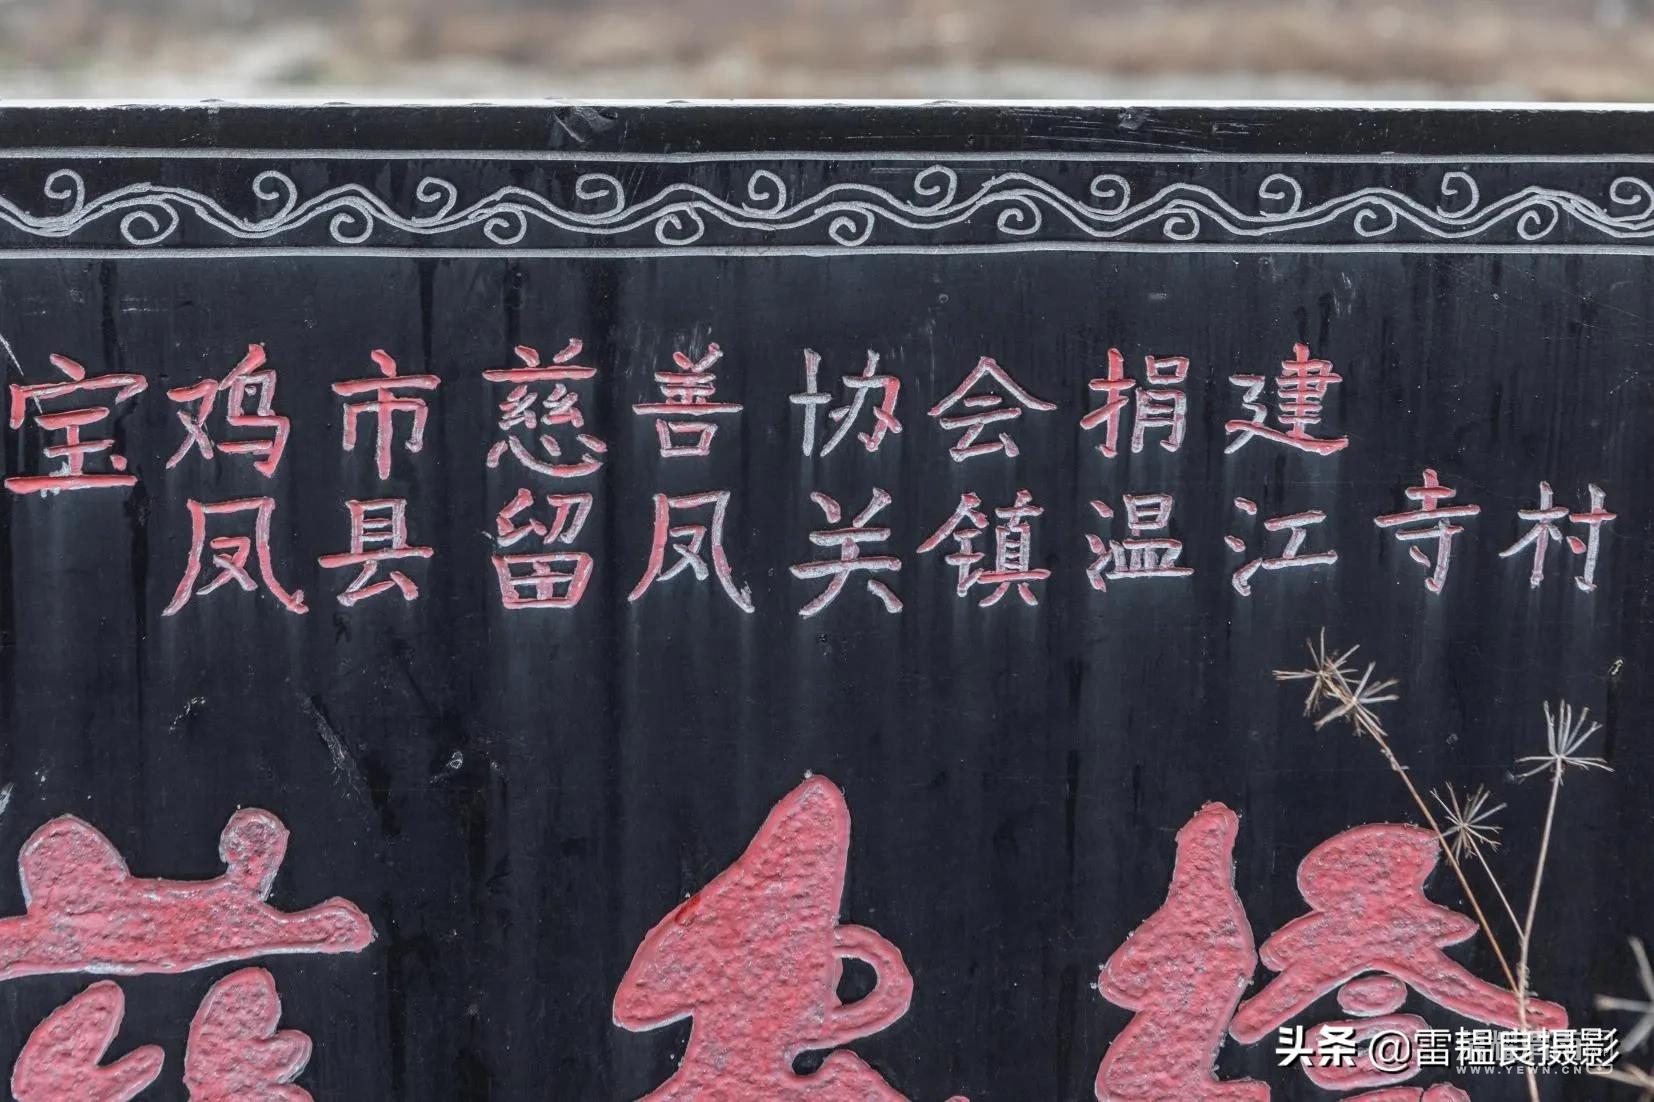 宝鸡市慈善协会捐建
凤县留凤关镇温江寺村
头条 @雷韫良摄影
WWW.YEWN.CN